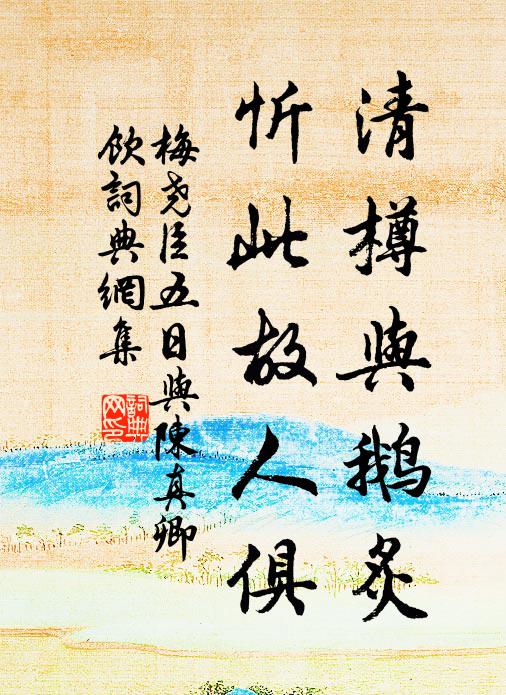 清樽與鵝炙
忻此故人俱
梅堯臣五日與陳真卿
飲詞典網集
詞典
网印